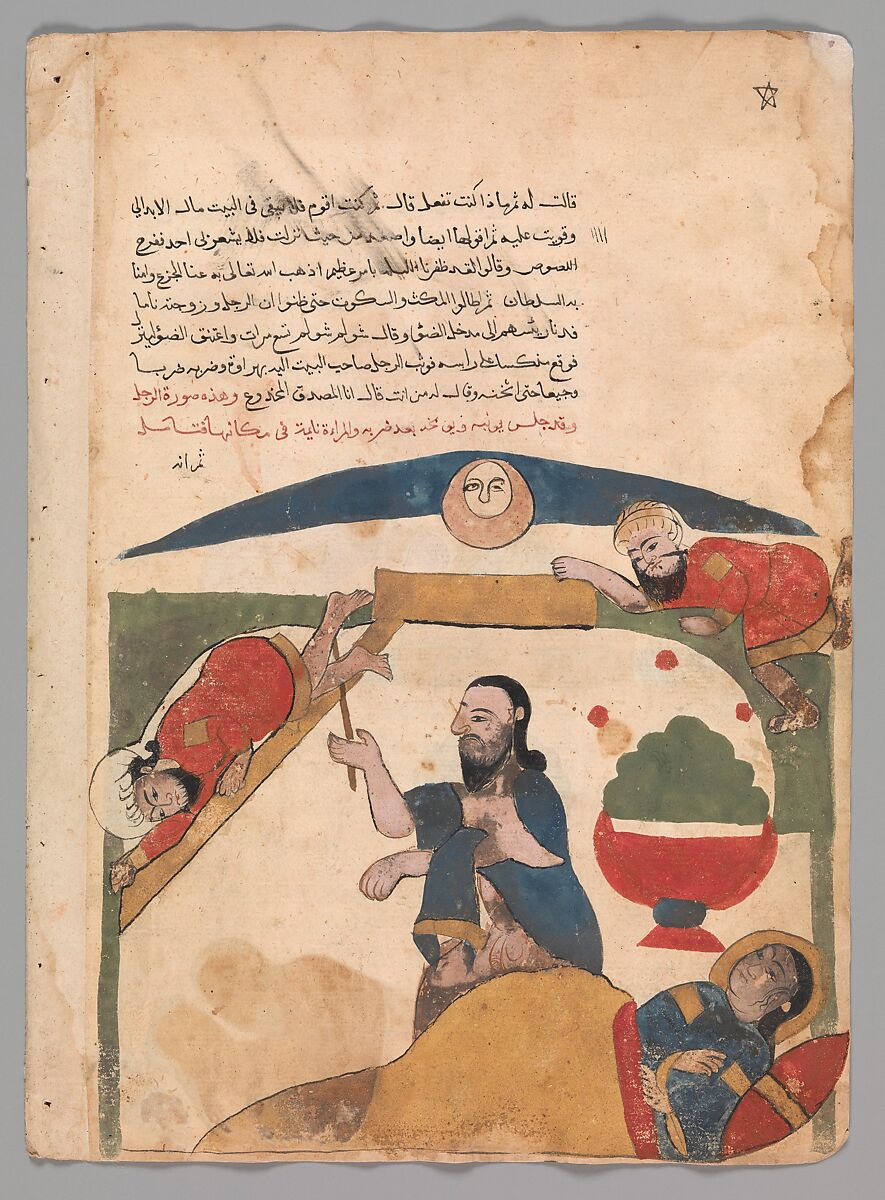 قالت له ثم ماذا كنت تفعل قال ثم كنت اقوم فلا يبقى فى البيت مال الا بدا لى
وقويت عليه ثم اقولها ايضا واصعد من حيث نزلت فلا يشعر بى احد ففرح
اللصوص وقالوا لقد ظفرنا الليلة بامر عظيم اذهب الله تعالى به عنا الجزع وامنا
به السلطان ثم اطالوا المكث والسكوت حتى ظنوا ان الرجل وزوجته ناما
فدنا رئيسهم الى مدخل الضوء وقال شولم شولم سبع مرات واعتنق الضوء لينزل
فوقع منكسا على راسه فوثب الرجل صاحب البيت اليه بهراوة وضربه ضربا
وجيعا حتى اثخنه وقال له من انت قال انا المصدق المخدوع وهذه صورة الرجل
وقد جلس يونبه ويوبخه بعد ضربه والمراة نايمة فى مكانها
ثم انه